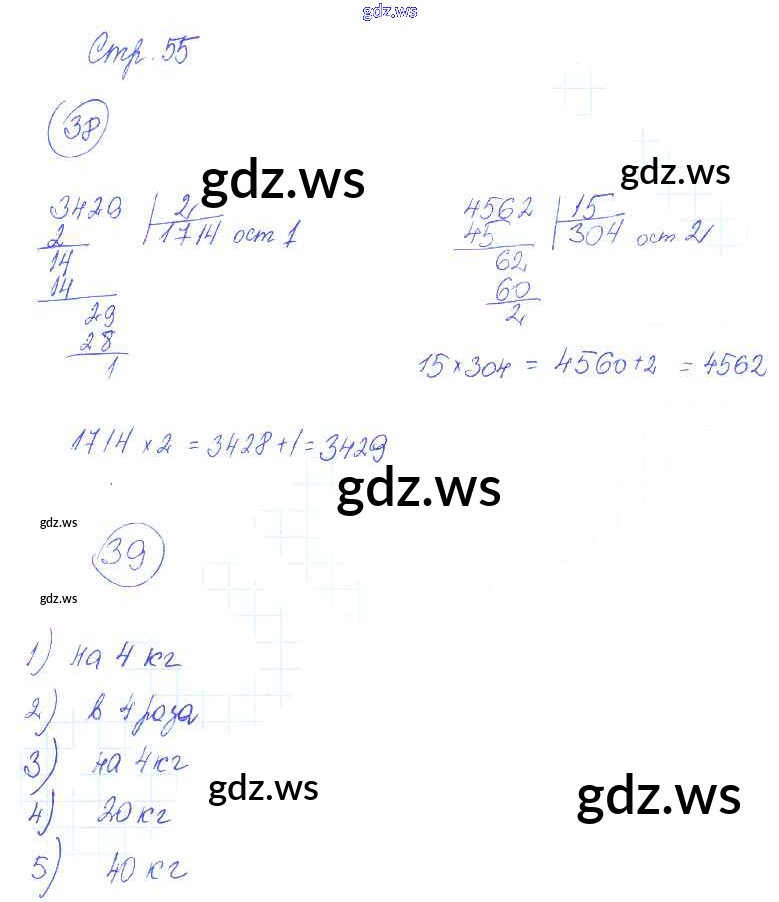 gdz.ws
Стр. 55
38
gdz.ws
gdz.ws
3429 | 2
2
1714 ост 1
14
14
29
28
1
4562 | 15
45
304 ост 2
62
60
2
15 × 304 = 4560 + 2 = 4562
1714 × 2 = 3428 + 1 = 3429
gdz.ws
gdz.ws
39
gdz.ws
1) на 4 кг
2) в 4 раза
3) на 4 кг
gdz.ws
gdz.ws
4) 20 кг
5) 40 кг